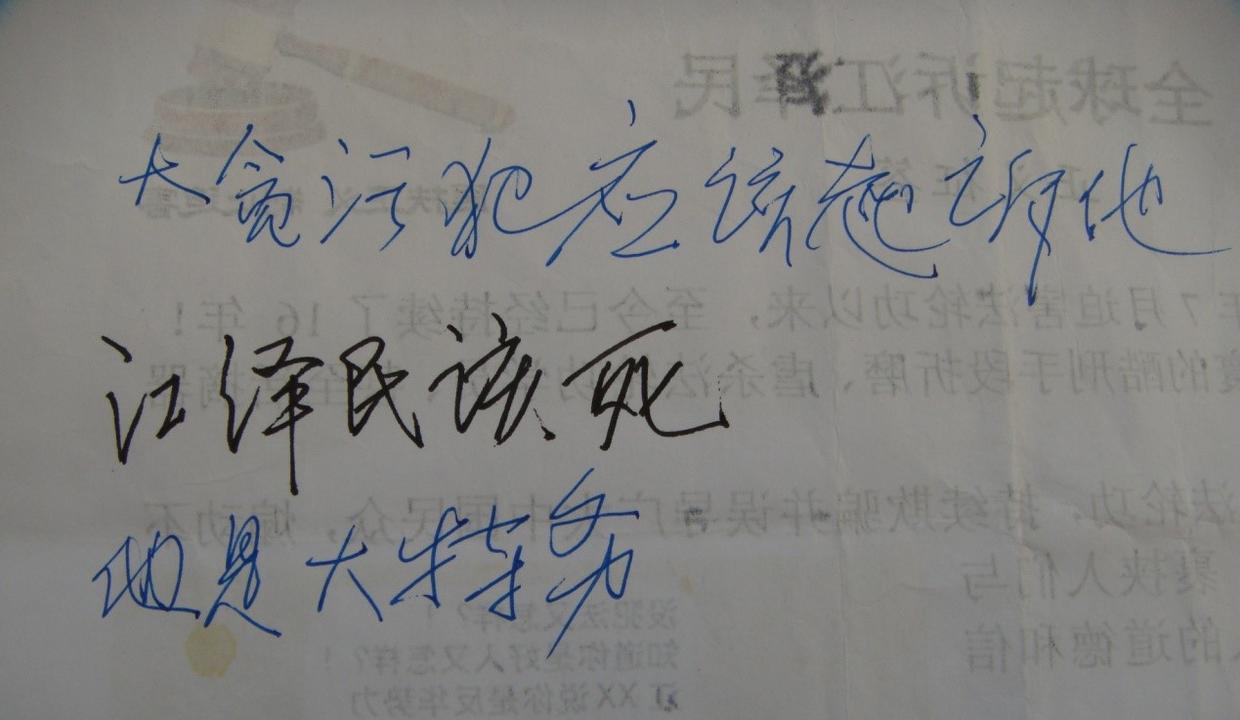 大贪污犯应该起诉他
江泽民该死
他是大特务
全球起诉江泽民
年7月迫害法轮功以来，至今已经持续了 16 年！
的酷刑手段折磨、虐杀法
法轮功，持续欺骗并误导广大中国民众，煽动不
裹挟人们与
的道德和信
没犯法又怎样？！
知道你是好人又怎样？！
江XX说你是反华势力